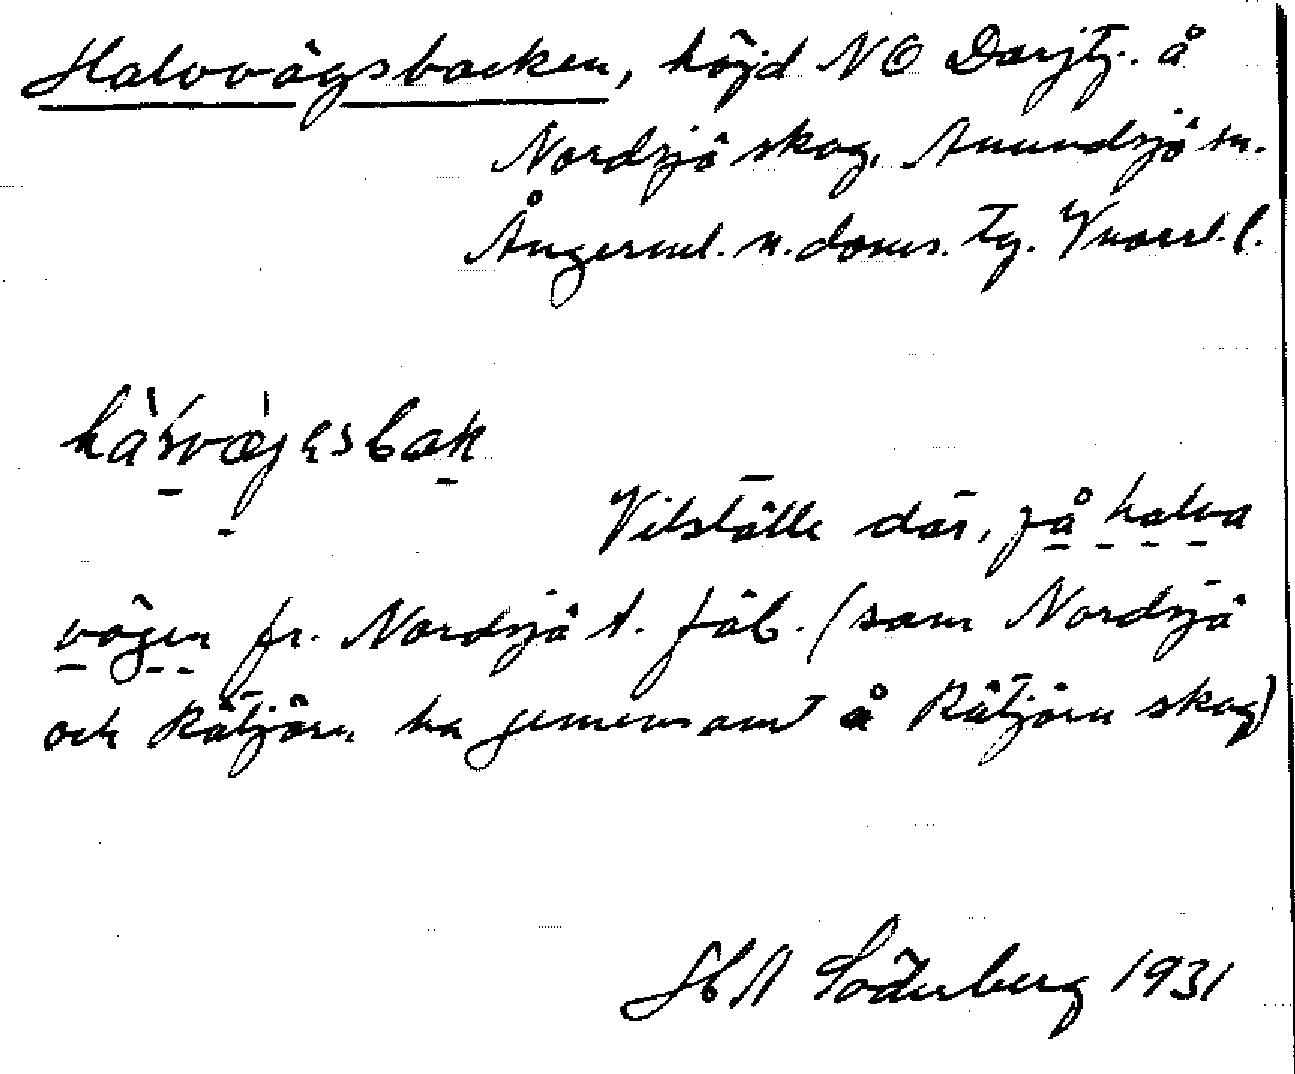 Halvvägsbacken, höjd NO Darjtj. å
Nordsjö skog, Anundsjö sn.
Ångerml. n. doms. tg. Vnorrl. l.
Vilställe där, på halva
vägen fr. Nordsjö t. fäb. (som Nordsjö
och Råtjärn ha gemensamt å Råtjärn skog)
H A Söderberg 1931